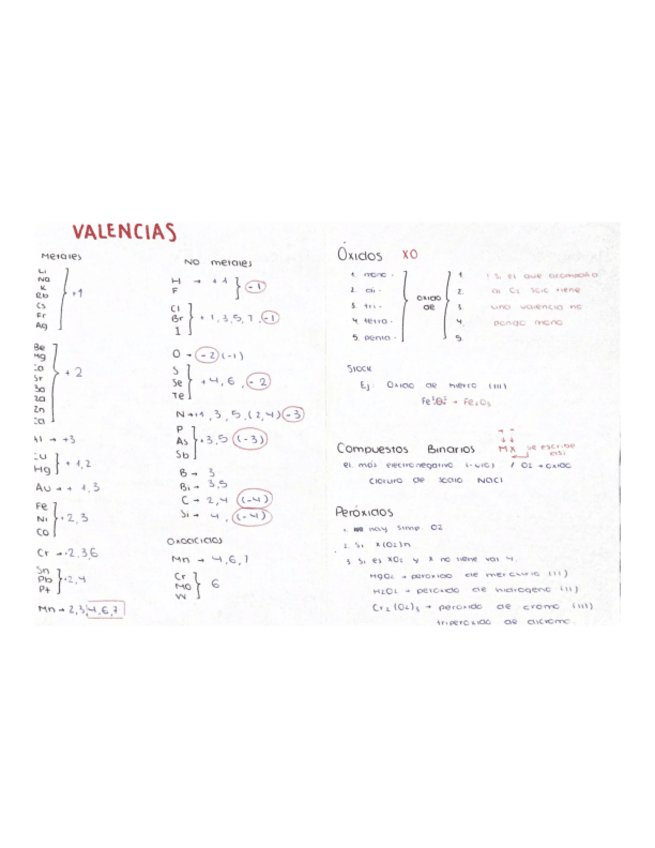 VALENCIAS
Metales
Li
Na
K
Rb
Cs
Fr
Ag
+1
Be
Mg
Sr
+2
Al → +3
Hg
+1,2
Au → +1,3
Fe
Ni
Co
+2,3
Cr → +2,3,6
Sn
Pb
Pt
+2,4
Mn → 2,3,4,6,7
No metales
H → +1
F
-1
Cl
Br
I
+1,3,5,7,-1
O → -2 (-1)
S
Se
Te
+4,6,-2
N → +1,3,5,(2,4) -3
P
As
Sb
+3,5 (-3)
B → 3
Bi → 3,5
C → 2,4 (-4)
Si → 4, (-4)
Oxoácidos
Mn → 4,6,7
Cr
Mo
W
6
Óxidos XO
1. mono -
2. di -
3. tri -
4. tetra -
5. penta -
óxido de
1.
2.
3.
4.
5.
si el que acompaña
al O2 solo tiene
una valencia no
pongo mono
Stock
Ej: Óxido de hierro (III)
→ Fe2O3
Compuestos Binarios
+ -
MX se escribe así
el más electronegativo (-uro) / O2 → óxido
cloruro de sodio NaCl
Peróxidos
1. no hay simp. O2
2. Si X(O2)n
3. Si es XO2 y X no tiene val 4.
HgO2 → peróxido de mercurio (II)
H2O2 → peróxido de hidrógeno (II)
Cr2(O2)3 → peróxido de cromo (III)
triperóxido de dicromo